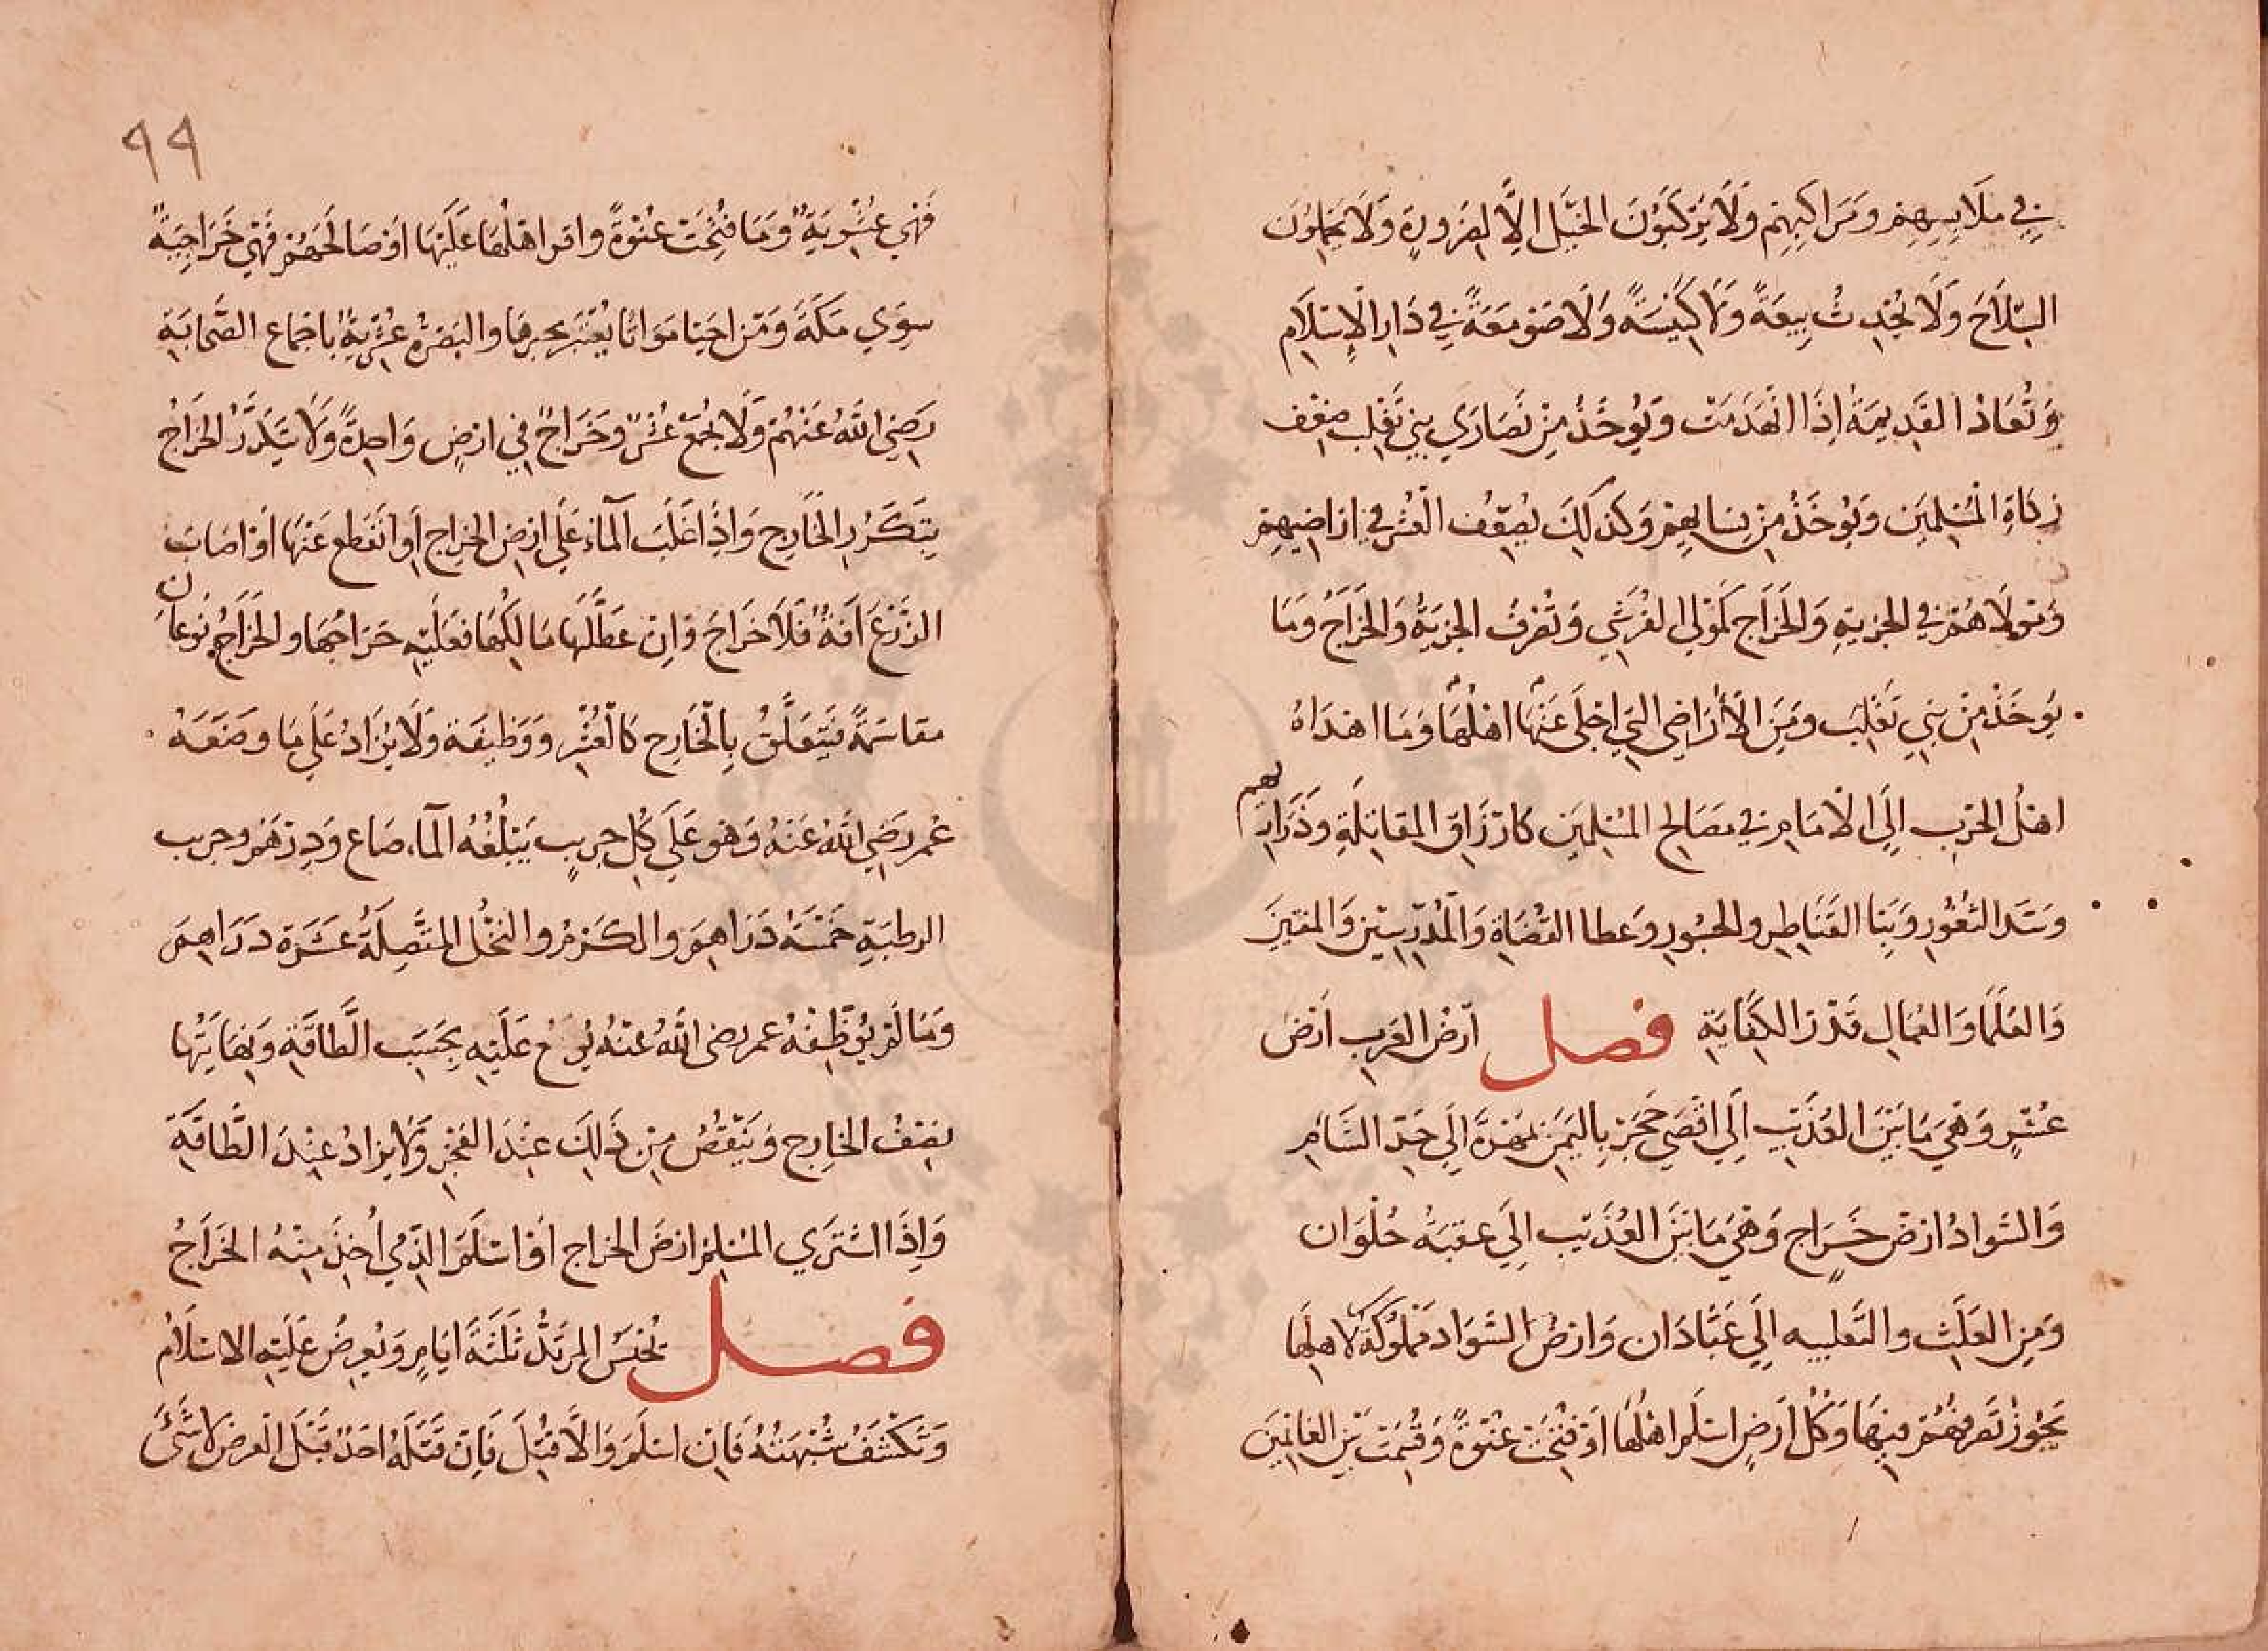 في ملابسهم ومراكبهم ولا يركبون الخيل الا لضرورة ولا يحملون
السلاح ولا يحدث بيعة ولا كنيسة ولا صومعة في دار الإسلام
وتعاد القديمة إذا انهدمت ويوخذ من نصارى بني تغلب ضعف
زكاة المسلمين ويوخذ من نسايهم وكذلك يضعف العشر في اراضيهم
ومولاهم في الجزية والخراج كمولى القرشي وتصرف الجزية والخراج وما
يوخذ من بني تغلب ومن الأراضي التي اجلى عنها اهلها وما اهداه
اهل الحرب إلى الامام في مصالح المسلمين كارزاق المقاتلة وذراريهم
وسد الثغور وبنا القناطر والجسور وعطا القضاة والمدرسين والمفتين
والعلما والعمال قدر الكفاية فصل أرض العرب أرض
عشر وهي ما بين العذيب إلى اقصى حجر باليمن بمهرة إلى حد الشام
والسواد ارض خراج وهي ما بين العذيب إلى عقبة حلوان
ومن العلث والثعلبيه إلى عبادان وارض السواد مملوكة لاهلها
يجوز تصرفهم فيها وكل أرض اسلم اهلها أو فتحت عنوة وقسمت بين الغانمين
٩٩
فهي عشرية وما فتحت عنوة واقر اهلها عليها او صالحهم فهي خراجية
سوى مكة ومن احيا مواتا يعتبر بحيزها والبصرة عشرية باجماع الصحابة
رضي الله عنهم ولا يجمع عشر وخراج في ارض واحدة ولا يتكرر الخراج
بتكرر الخارج وإذا غلب الماء على ارض الخراج أو انقطع عنها أو اصاب
الزرع افة فلا خراج وإن عطلها مالكها فعليه خراجها والخراج نوعان
مقاسمة فيتعلق بالخارج كالعشر ووظيفة ولا يزاد على ما وضعه
عمر رضي الله عنه وهو على كل جريب يبلغه الماء صاع ودرهم وجريب
الرطبة خمسة دراهم والكرم والنخل المتصلة عشرة دراهم
وما لم يوظفه عمر رضى الله عنه يوضع عليه بحسب الطاقة ونهايتها
نصف الخارج وينقص من ذلك عند العجز ولا يزاد عند الطاقة
وإذا اشترى المسلم ارض الخراج أو اسلم الذمي أخذ منه الخراج
فصل يحبس المرتد ثلثة ايام ويعرض عليه الاسلام
وتكشف شبهته فإن اسلم والا قتل فإن قتله احد قبل العرض لا شئ